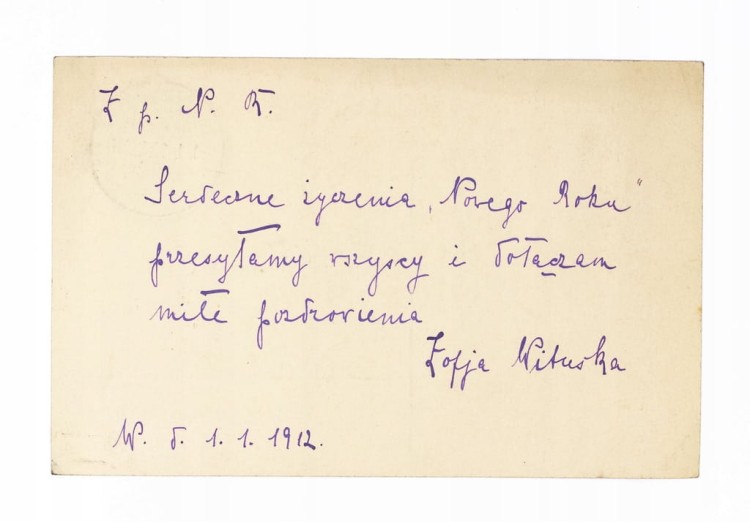 Z p. N. R.
Serdeczne życzenia „Nowego Roku”
przesyłamy wszyscy i dołączam
miłe pozdrowienia
Zofja Wituska
W. d. 1. 1. 1912.